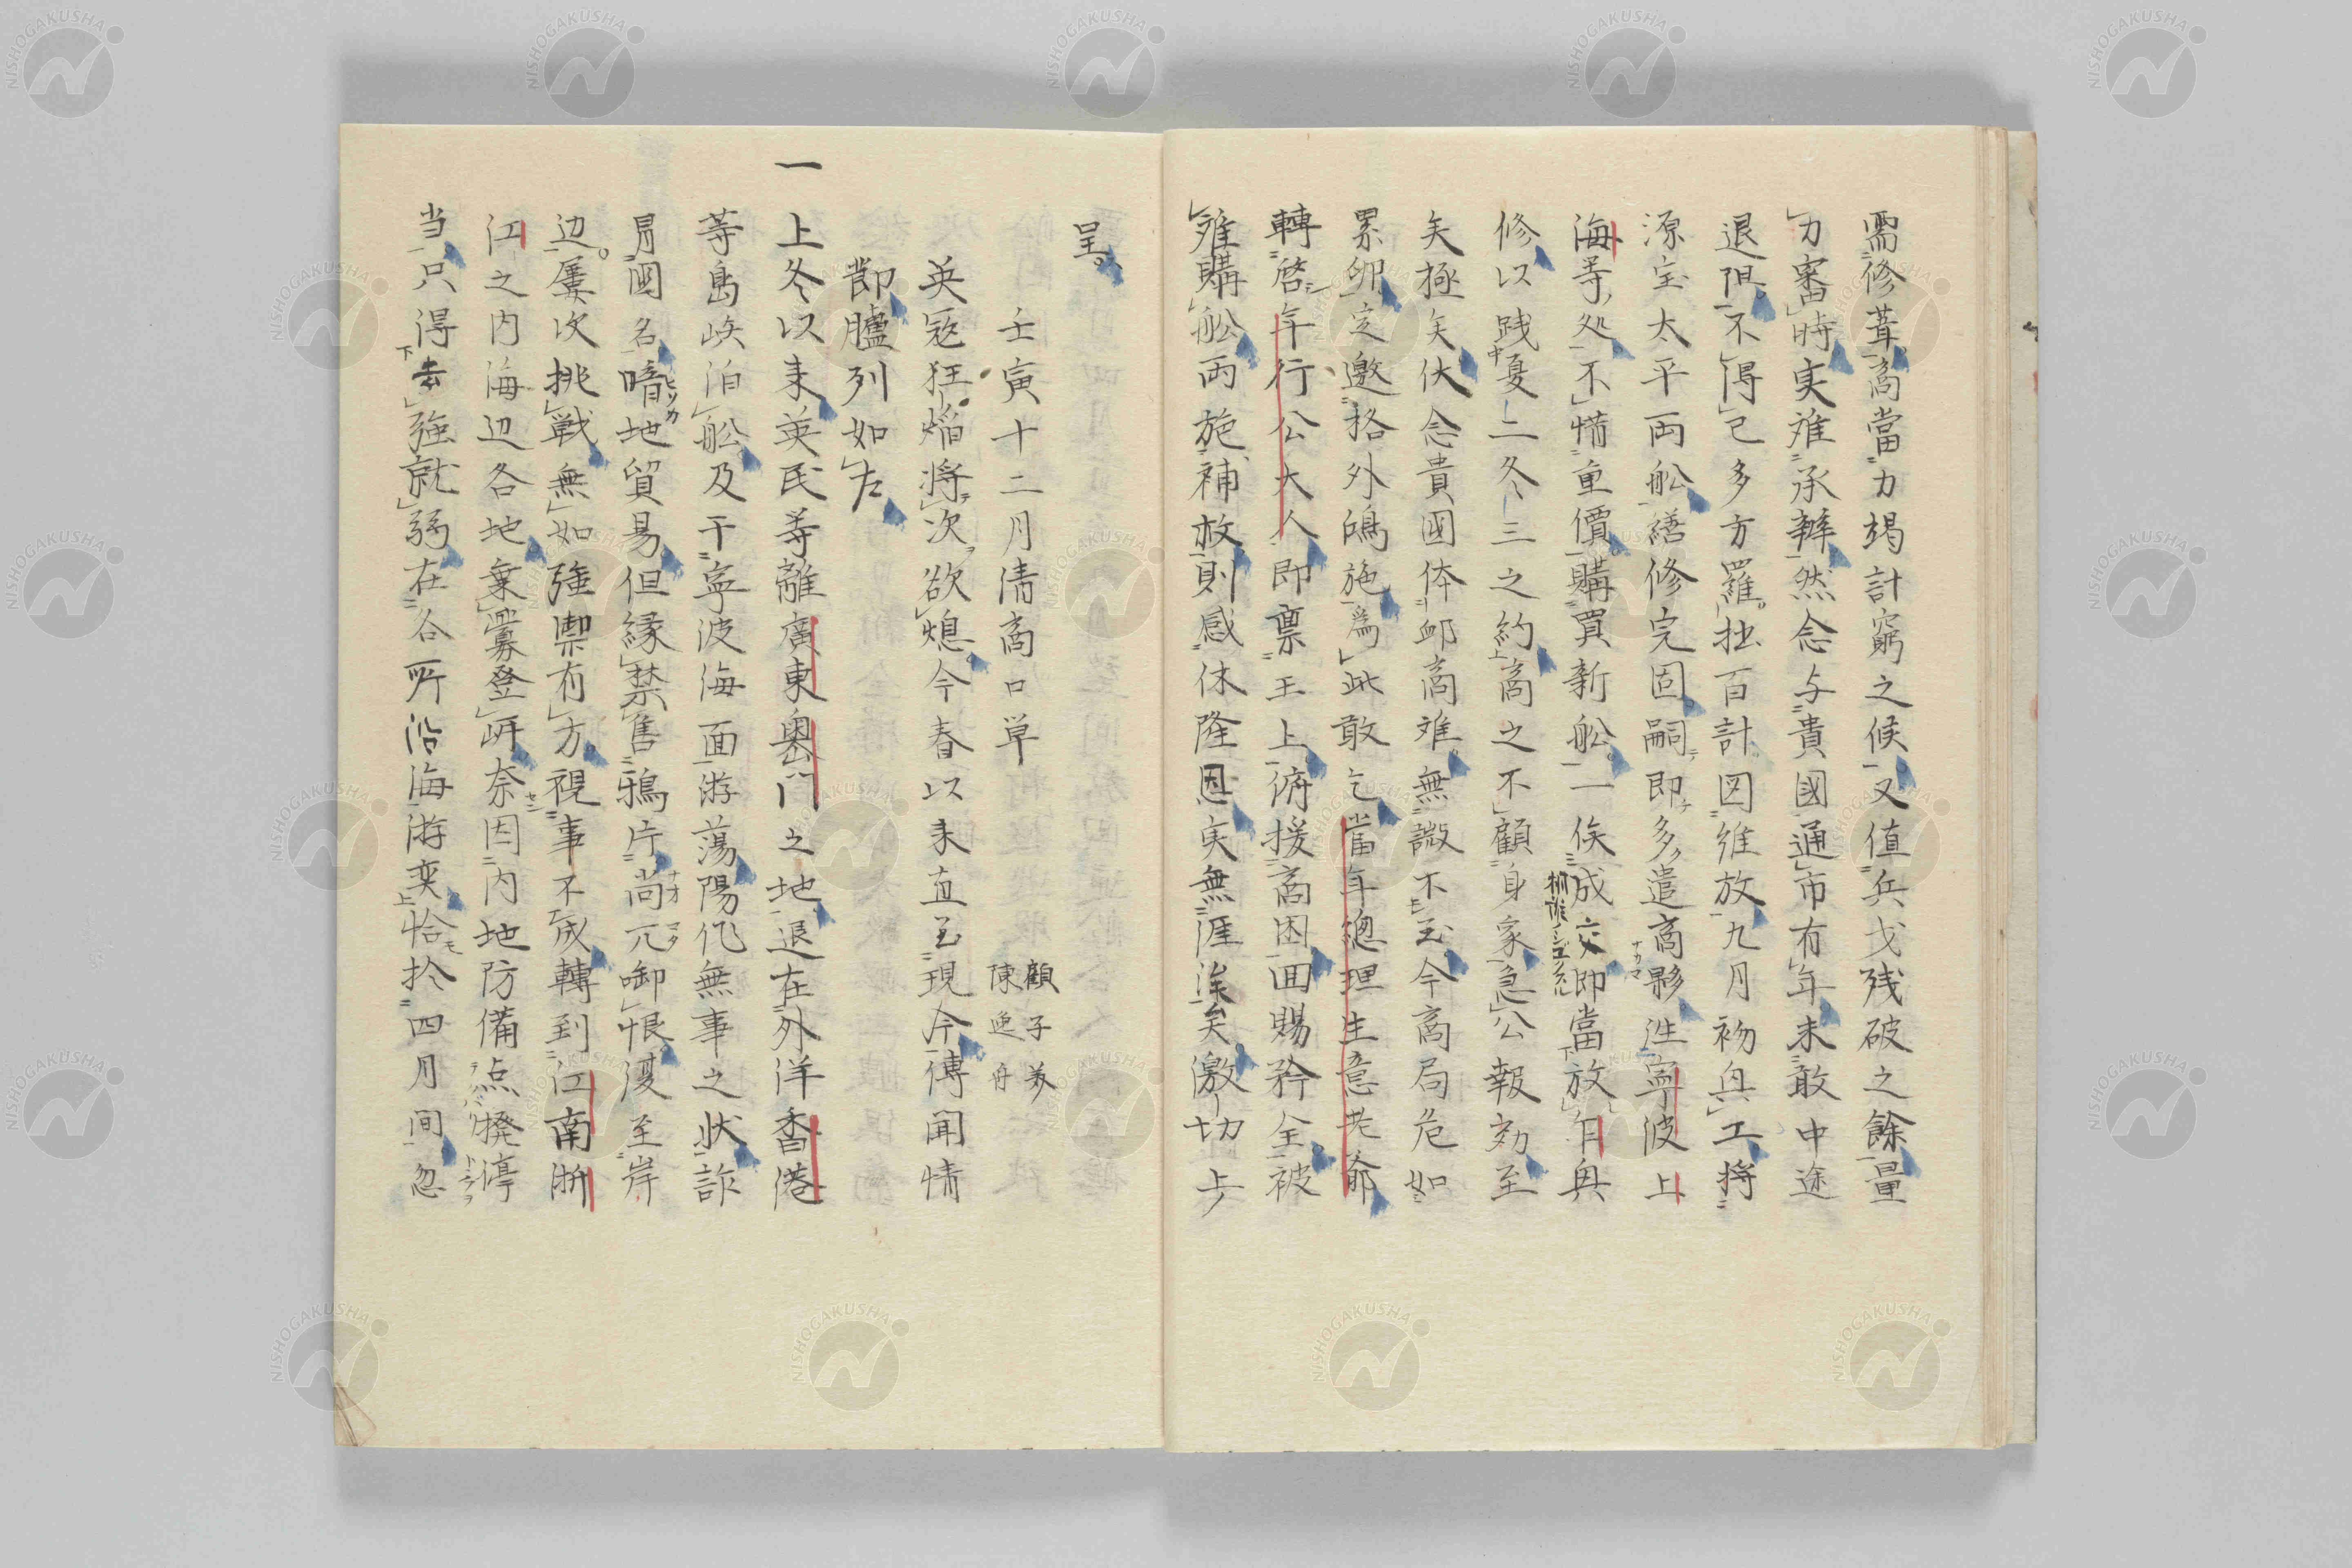 需修葺商當力竭計窮之候又值兵戈残破之餘量
力審時実难承辦然念与貴國通市有年未敢中途
退阻不得已多方羅拙百計図維放九月初臾工將
源宝太平両舩繕修完固嗣即多遣商夥迬寧波上
海等処不惜重價購買新舩一俟成交即當放
修以践夏二冬三之約商之不顧身家急公報効至
矣極矣伏念貴國体邺商难無微不至今商局危如
累卵定邀格外鴻施為此敢乞當年總理生意老爺
轉啓年行公大人即禀王上俯援商困回賜矜全被
难購舩両施補救則感休隆恩実無涯涘矣激切上
呈
壬寅十二月清商口单
顧子英
陳逸舟
英寇狂焰將次欲熄今春以来直至現今傳聞情
節臚列如左
一
上冬以来英民等離廣東奥門之地退在外洋香港
等島峡泊舩及干寧波海面游蕩陽作無事之状詐
冐國名暗地貿易但縁禁售鴉片尚兀啣恨復至岸
ヒソカ
ナオ
边屢次挑戰無如強禦有方視事不成轉到江南浙
江之内海边各地棄釁登岍奈因内地防備点撥渟
当只得去強就弱在各所沿海游奕恰於四月间忽